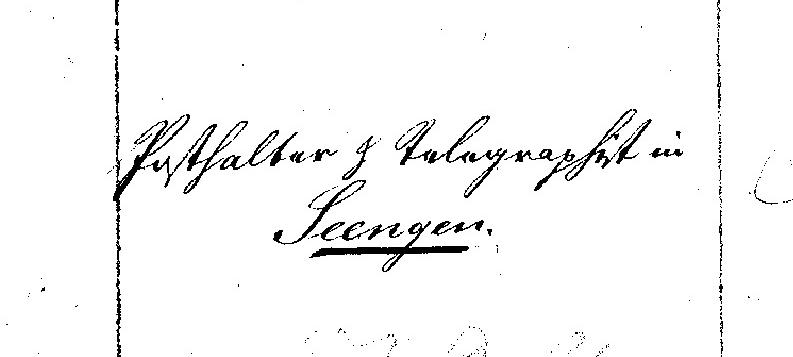 Posthalter & Telegraphist in
Seengen.